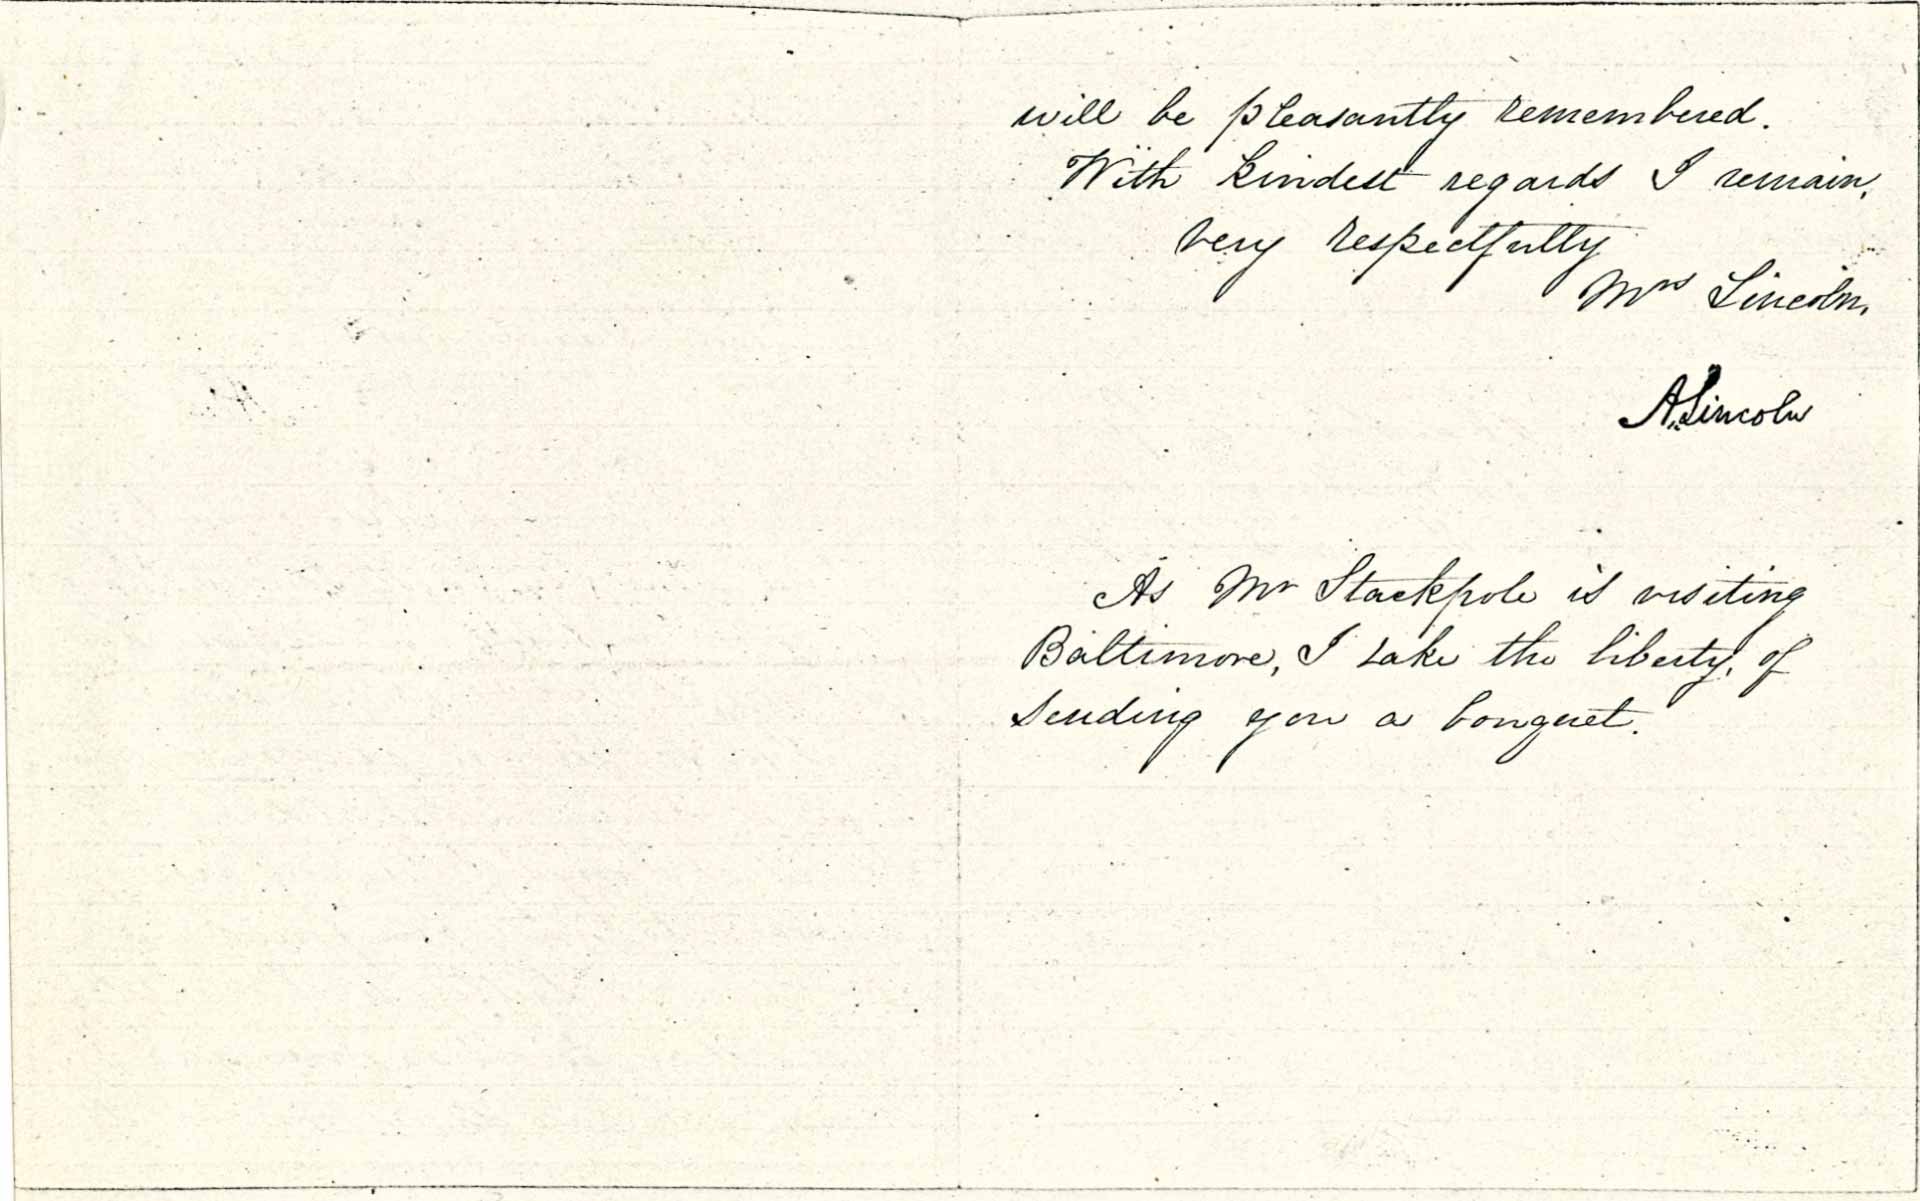 will be pleasantly remembered.
With kindest regards I remain,
very respectfully
Mrs Lincoln.
A. Lincoln
As Mr Stackpole is visiting
Baltimore, I take the liberty, of
sending you a bouquet.